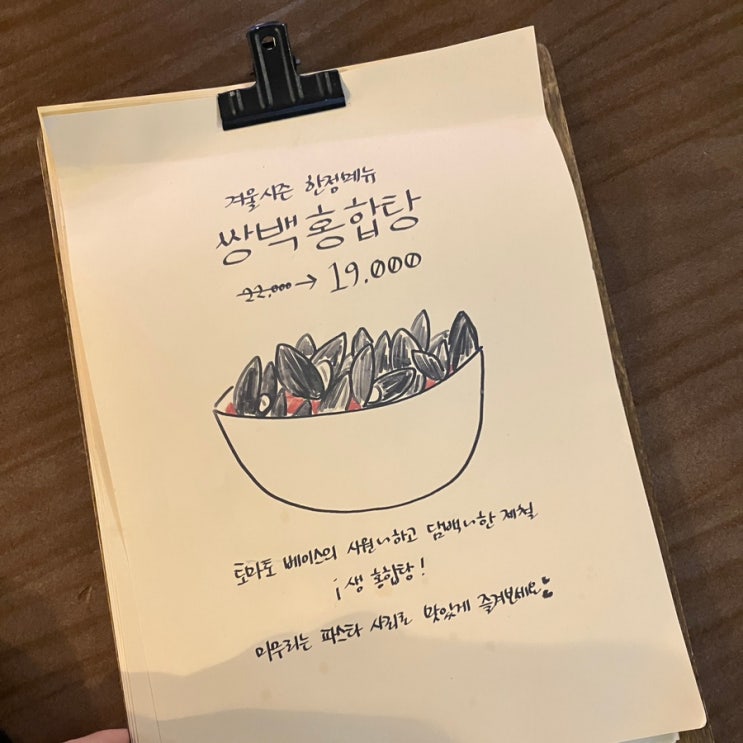 겨울시즌 한정메뉴
쌍백홍합탕
22,000→ 19,000
토마토 베이스의 시원~하고 담백~한 제철
¡생 홍합탕!
마무리는 파스타 사리로 맛있게 즐겨보세요